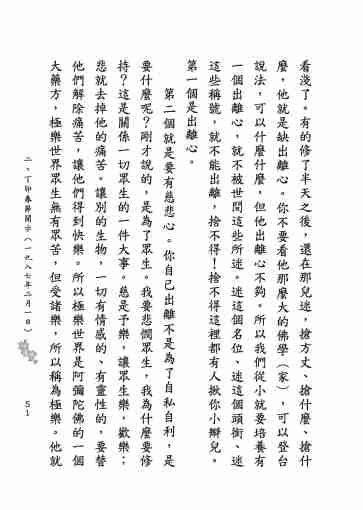 看淺了。有的修了半天之後，還在那兒迷，搶方丈、搶什麼、搶什
麼，他就是缺出離心。你不要看他那麼大的佛學（家），可以登台
說法，可以什麼什麼，但他出離心不夠。所以我們從小就要培養有
一個出離心，就不被世間這些所迷。迷這個名位、迷這個頭銜、迷
這些稱號，就不能出離，捨不得！捨不得這裡都有人揪你小辮兒。
第一個是出離心。
第二個就是要有慈悲心。你自己出離不是為了自私自利，是
要什麼呢？剛才說的，是為了眾生。我要悲憫眾生，我為什麼要修
持？這是關係一切眾生的一件大事。慈是予樂，讓眾生樂，歡樂；
悲就去掉他的痛苦。讓別的生物，一切有情感的、有靈性的，要替
他們解除痛苦，讓他們得到快樂。所以極樂世界是阿彌陀佛的一個
大藥方，極樂世界眾生無有眾苦，但受諸樂，所以稱為極樂。他就
二、丁卯春節開示（一九八七年二月一日）
51